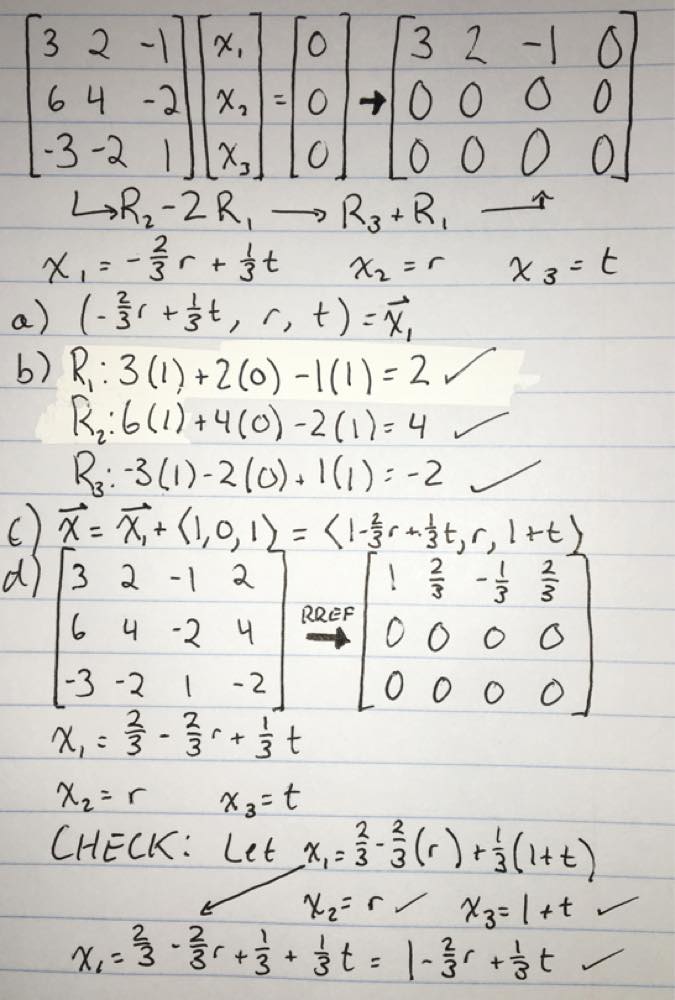 [3 2 -1] [x₁] = [0] → [3 2 -1 0]
[6 4 -2] [x₂] = [0] → [0 0 0 0]
[-3 -2 1] [x₃] = [0] → [0 0 0 0]
↳R₂-2R₁ → R₃+R₁ →
x₁ = -2/3 r + 1/3 t x₂ = r x₃ = t
a) (-2/3 r + 1/3 t, r, t) = x⃗₁
b) R₁: 3(1)+2(0)-1(1)=2 ✓
R₂: 6(1)+4(0)-2(1)=4 ✓
R₃: -3(1)-2(0)+1(1)=-2 ✓
c) x⃗ = x⃗₁ + ⟨1,0,1⟩ = ⟨1-2/3 r + 1/3 t, r, 1+t⟩
d) [3 2 -1 2] [1 2/3 -1/3 2/3]
[6 4 -2 4] RREF → [0 0 0 0]
[-3 -2 1 -2] [0 0 0 0]
x₁ = 2/3 - 2/3 r + 1/3 t
x₂ = r x₃ = t
CHECK: Let x₁ = 2/3 - 2/3 (r) + 1/3 (1+t)
x₂ = r ✓ x₃ = 1+t ✓
x₁ = 2/3 - 2/3 r + 1/3 + 1/3 t = 1 - 2/3 r + 1/3 t ✓